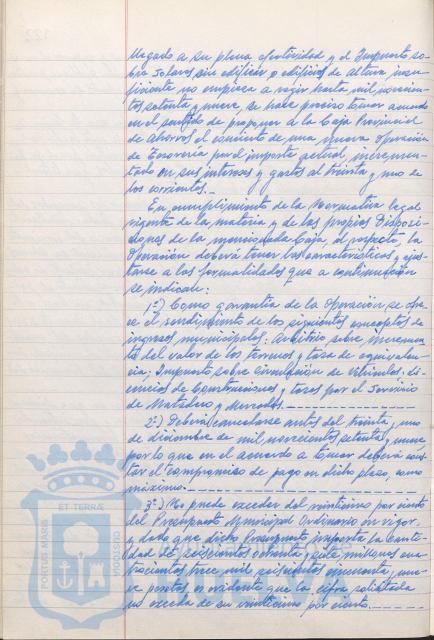 llegado a su plena efectividad y el Impuesto so-
bre solares sin edificar o edificios de altura insu-
ficiente no empieza a regir hasta mil novecien-
tos setenta y nueve, se hace preciso tomar acuerdo
en el sentido de proponer a la Caja Provincial
de Ahorros el concierto de una nueva Operación
de Tesorería por el importe actual, incremen-
tado en sus intereses y gastos al treinta y uno de
los corrientes.-
En cumplimiento de la Normativa legal
vigente de la materia y de las propias Disposi-
ciones de la mencionada Caja, al respecto, la
Operación deberá tener las características y ajus-
tarse a las formalidades que a continuación
se indican:
1º.) Como garantía de la Operación se ofre-
ce el rendimiento de los siguientes conceptos de
ingresos municipales: Arbitrio sobre incremen-
to del valor de los terrenos y tasa de equivalen-
cia; Impuesto sobre Circulación de Vehículos; Li-
cencias de Construcciones y tasas por el Servicio
de Matadero y Mercados.
2º.) Deberá cancelarse antes del treinta y uno
de diciembre de mil novecientos setenta y nueve
por lo que en el acuerdo a tomar deberá cons-
tar el compromiso de pago en dicho plazo, como
máximo.
3º.) No puede exceder del veinticinco por ciento
del Presupuesto Municipal Ordinario en vigor,
y dado que dicho Presupuesto importa la Canti-
dad de seiscientos ochenta y siete millones cua-
trocientos trece mil seiscientas cincuenta y nue-
ve pesetas es evidente que la cifra solicitada
no exceda de su veinticinco por ciento.
PORTUS MARIS
ET TERRAE
CUSTODIA
HUELVA